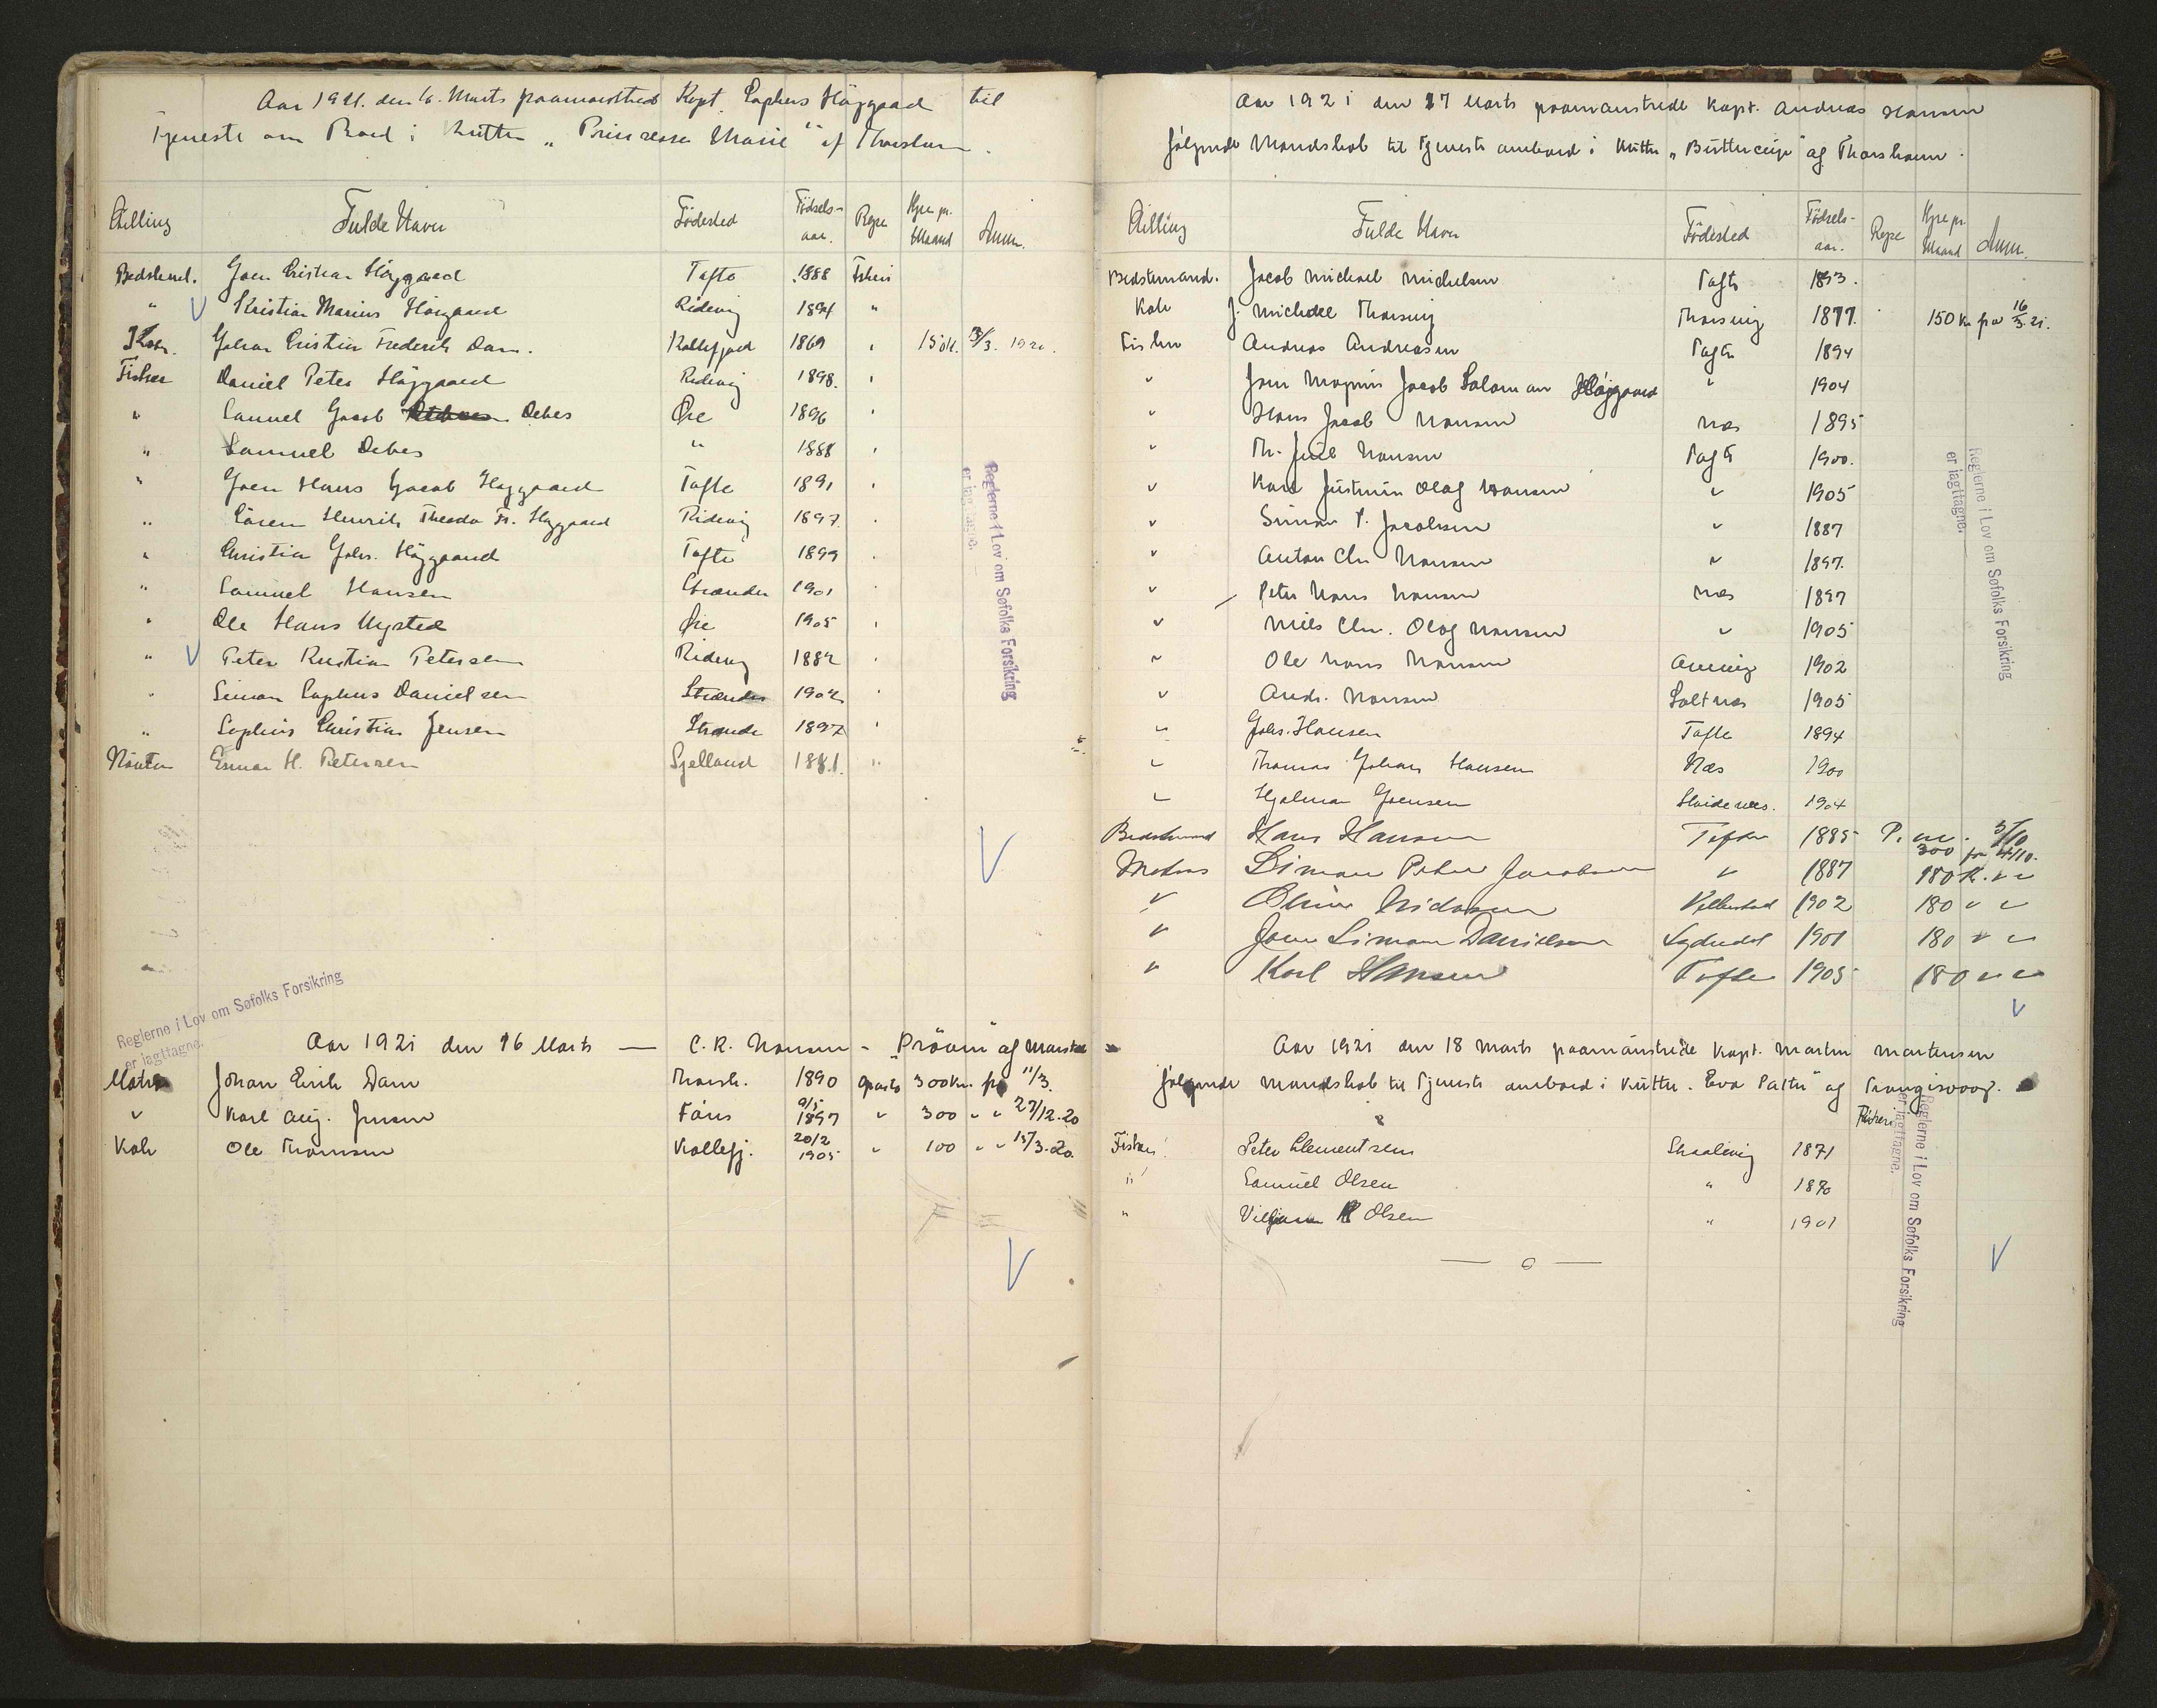 Aar 1921. den 16. Marts paamønstrede Kapt. Sophus Højgaard til
Tjeneste om Bord i Kutter „Prinsesse Marie“ af Thorshavn.
Stilling Fulde Navn Fødested Fødsels-aar. Rejse Hyre pr. Maaned Anm.
Bedstemd. Joen Cristian Højgaard Tofte 1888 Fiskeri
" Kristian Marius Højgaard Ridevig 1894 "
Kok. Johan Cristian Frederik Dam. Kollefjord 1869 " 150 K. 13/3. 1921.
Fisker Daniel Peter Højgaard Ridevig 1898. "
" Samuel Jacob Debes Øre 1896 "
" Samuel Debes " 1888 "
" Joen Hans Jacob Højgaard Tofte 1891 "
" Sören Henrik Theodor Fr. Højgaard Ridevig 1897. "
" Christian Johs. Højgaard Tofte 1899 "
" Samuel Hansen Strænder 1901 "
" Ole Hans Mysted Øre 1905 "
" Peter Kristian Petersen Ridevig 1882 "
" Simon Sophus Danielsen Strænder 1902 "
" Sophus Christian Jensen Strænder 1897 "
Einar H. Petersen Sjelland 1881. "
Reglerne i Lov om Søfolks Forsikring
er iagttagne.
Reglerne i Lov om Søfolks Forsikring
er iagttagne.
Aar 1921 den 16 Marts — C. R. Hansen - „Prøven“ af Marstal
Matros Johan Eirik Dam Thorsh. 1890 300 Kr. fra 11/3.
" Karl Aug. Jensen 9/5 1897 " 300 " " 27/12.20
Kok Ole Thomsen Kollefj. 20/2 1905 " 100 " " 15/3.20
Aar 1921 den 17 Marts paamønstrede Kapt. Andreas Hansen
følgende Mandskab til Tjeneste ombord i Kutter „Buttercup“ af Thorshavn.
Stilling Fulde Navn Fødested Fødsels-aar. Rejse Hyre pr Maaned Anm.
Bedstemand. Jacob Michael Michelsen Tofte 1893.
Kok J. Michael Thorsvig Thorsvig 1877. 150 Kr fra 16/3.21.
Fisker Andreas Andreasen Tofte 1894
" Joen Magnus Jacob Salomon Højgaard " 1904
" Hans Jacob Hansen Næs 1895
" Th. Juul Hansen Tofte 1900.
" Karl Justinus Olaf Hansen " 1905
" Simon P. Jacobsen " 1887
" Anton Chr Hansen " 1897.
" Peter Hans Hansen Næs 1897
" Niels Chr. Olaf Hansen " 1905
" Ole Hans Hansen 1902
" Andr. Hansen Saltnæs 1905
" Johs. Hansen Tofte 1894
" Thomas Johan Hansen Næs 1900
" Hjalmar Joensen 1904
Bedstemand Hans Hansen Tofte 1885 P. m. 300 fra 4/10.
Matros Simon Peter Jacobsen " 1887 180 K. " "
" 1902 180 " "
" Joen Simon Danielsen 1901 180 " "
" Karl Hansen Tofte 1905 180 " "
Reglerne i Lov om Søfolks Forsikring
er iagttagne.
Aar 1921 den 18 Marts paamønstrede Kapt. Martin Martensen
følgende Mandskab til Tjeneste ombord i Kutter. Eva Patti" af Trangisvaag.
Fiskeri
Fisker Peter Clementsen Skaalevig 1871
" Samuel Olsen " 1890
" Olsen " 1901
— o —
Reglerne i Lov om Søfolks Forsikring
er iagttagne.